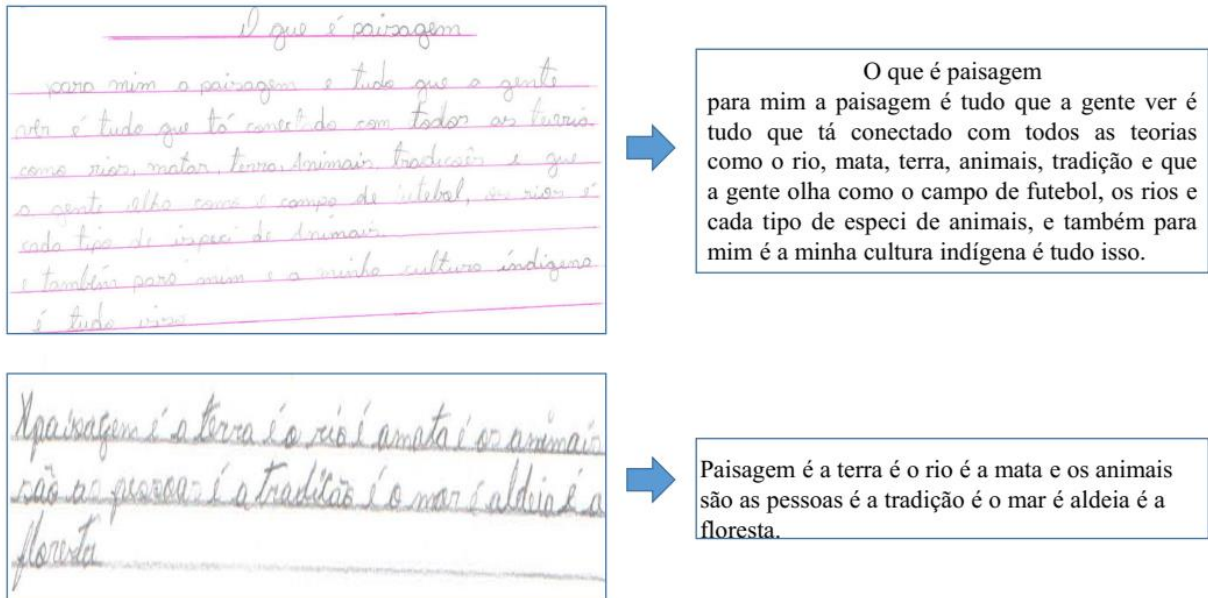 O que é paisagem
para mim a paisagem e tudo que a gente
ver é tudo que tá conectado com todos as
como rios, matas, terra, Animais, tradicoês e que
a gente olha como o campo de futebol, os rios é
cada tipo de ispeci de Animais.
e também para mim e a minha cultura indigena
é tudo
O que é paisagem
para mim a paisagem é tudo que a gente ver é
tudo que tá conectado com todos as teorias
como o rio, mata, terra, animais, tradição e que
a gente olha como o campo de futebol, os rios e
cada tipo de especi de animais, e também para
mim é a minha cultura indígena é tudo isso.
A paisagem é a terra é o rio é a mata é os animais
são as pessoas é a tradição é o mar é aldeia é a
floresta
Paisagem é a terra é o rio é a mata e os animais
são as pessoas é a tradição é o mar é aldeia é a
floresta.